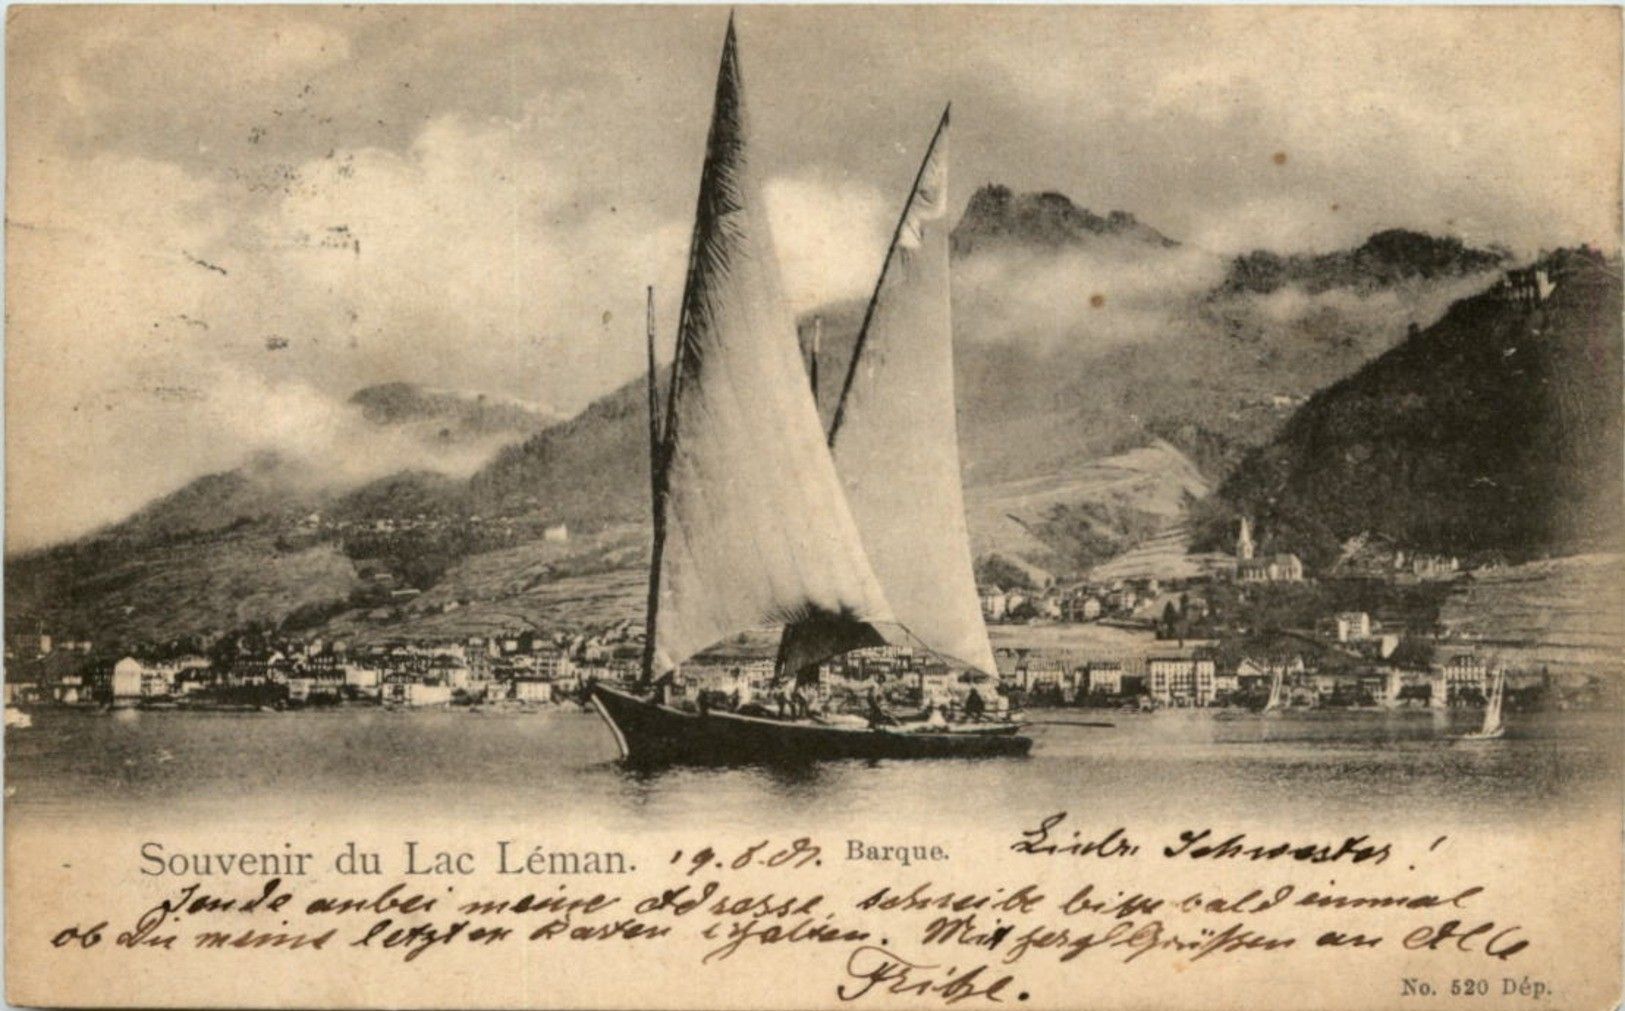 Souvenir du Lac Léman. 19.8.01. Barque. Liebe Schwester!
Sende anbei meine Adresse, schreibe bitte bald einmal
ob Du meine letzten Karten erhalten. Mit herzl Grüßen an Alle
Fritze.
No. 520 Dép.